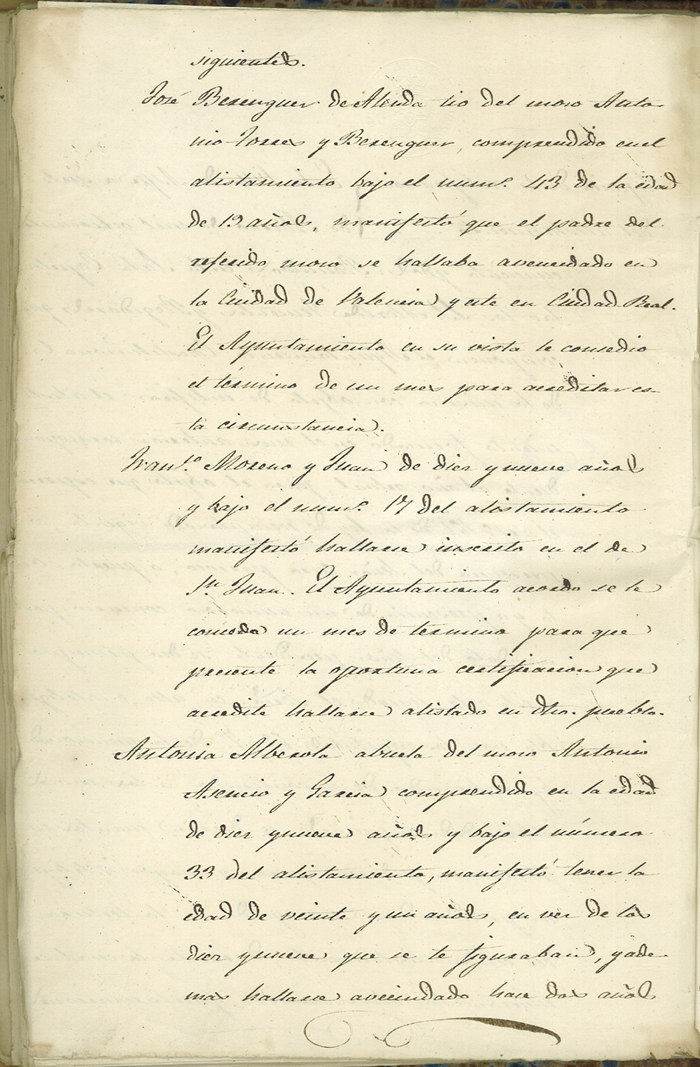 siguientes.
José Berenguer de Alenda tio del moso Anto-
nio Torres y Berenguer, comprendido en el
alistamiento bajo el num.º 43 de la edad
de 19 años, manifestó que el padre del
referido moso se hallaba avecindado en
la Ciudad de Valencia y este en Ciudad Real.
El Ayuntamiento en su vista le consedio
el término de un mes para acreditar es-
ta circunstancia.
Fran.co Moreno y Juan de diez y nueve años
y bajo el num.º 17 del alistamiento
manifestó hallarse inscrito en el de
Sn. Juan. El Ayuntamiento acordo se le
conceda un mes de termino para que
presente la oportuna certificacion que
acredite hallarse alistado en dho. pueblo.
Antonia Alberola abuela del moso Antonio
Asencio y Garcia comprendido en la edad
de diez y nueve años y bajo el número
33 del alistamiento, manifestó tener la
edad de veinte y un años, en ves de los
diez y nueve que se le figuraban, y ade-
mas hallarse avecindado hase dos años